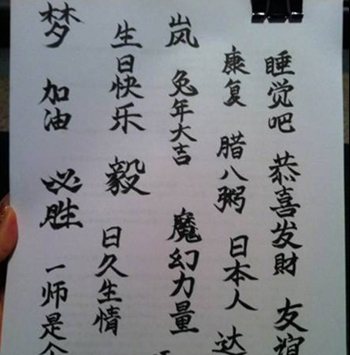 睡觉吧
恭喜发财
友谊
康复
腊八粥
日本人
达
岚
兔年大吉
魔幻力量
生日快乐
毅
日久生情
梦
加油
必胜
一师是个